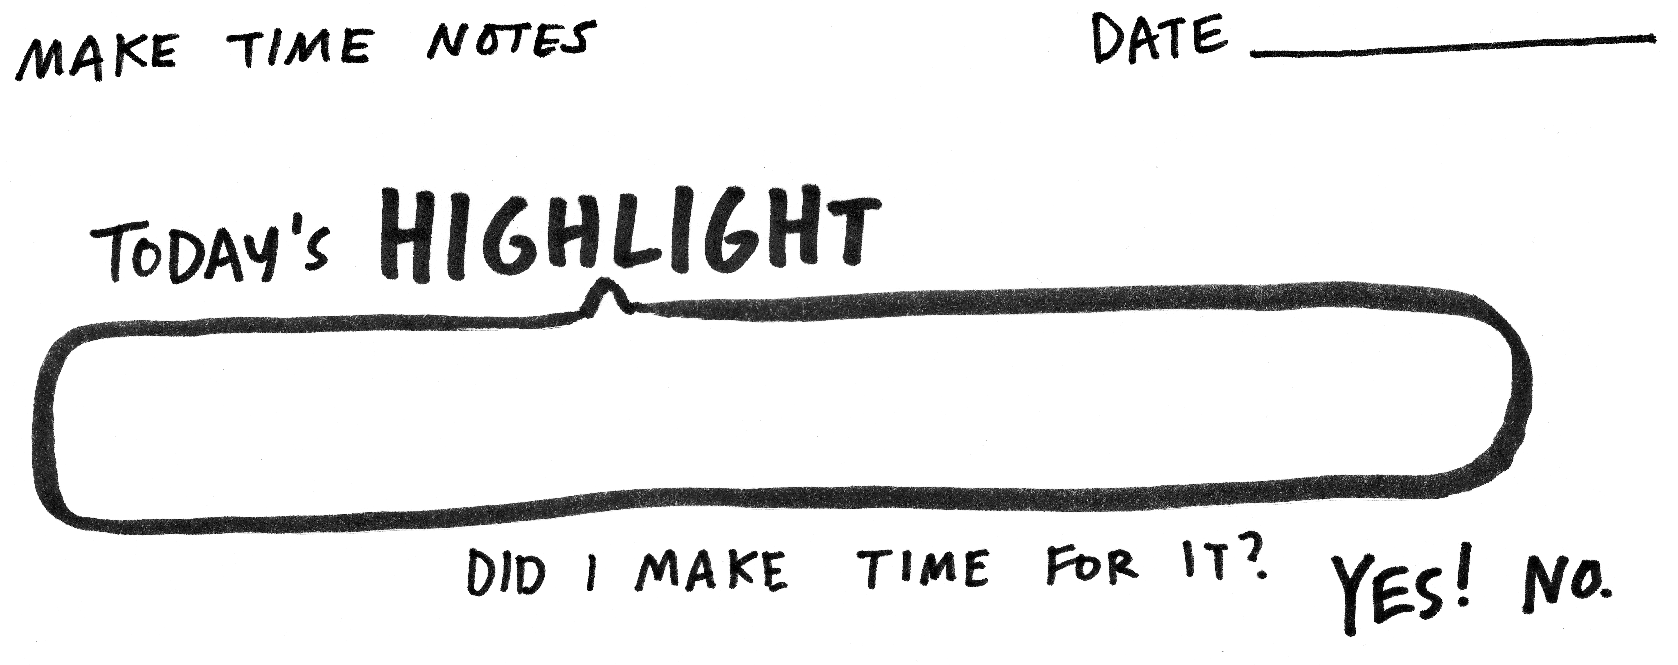 MAKE TIME NOTES DATE
TODAY'S HIGHLIGHT
DID I MAKE TIME FOR IT? YES! NO.